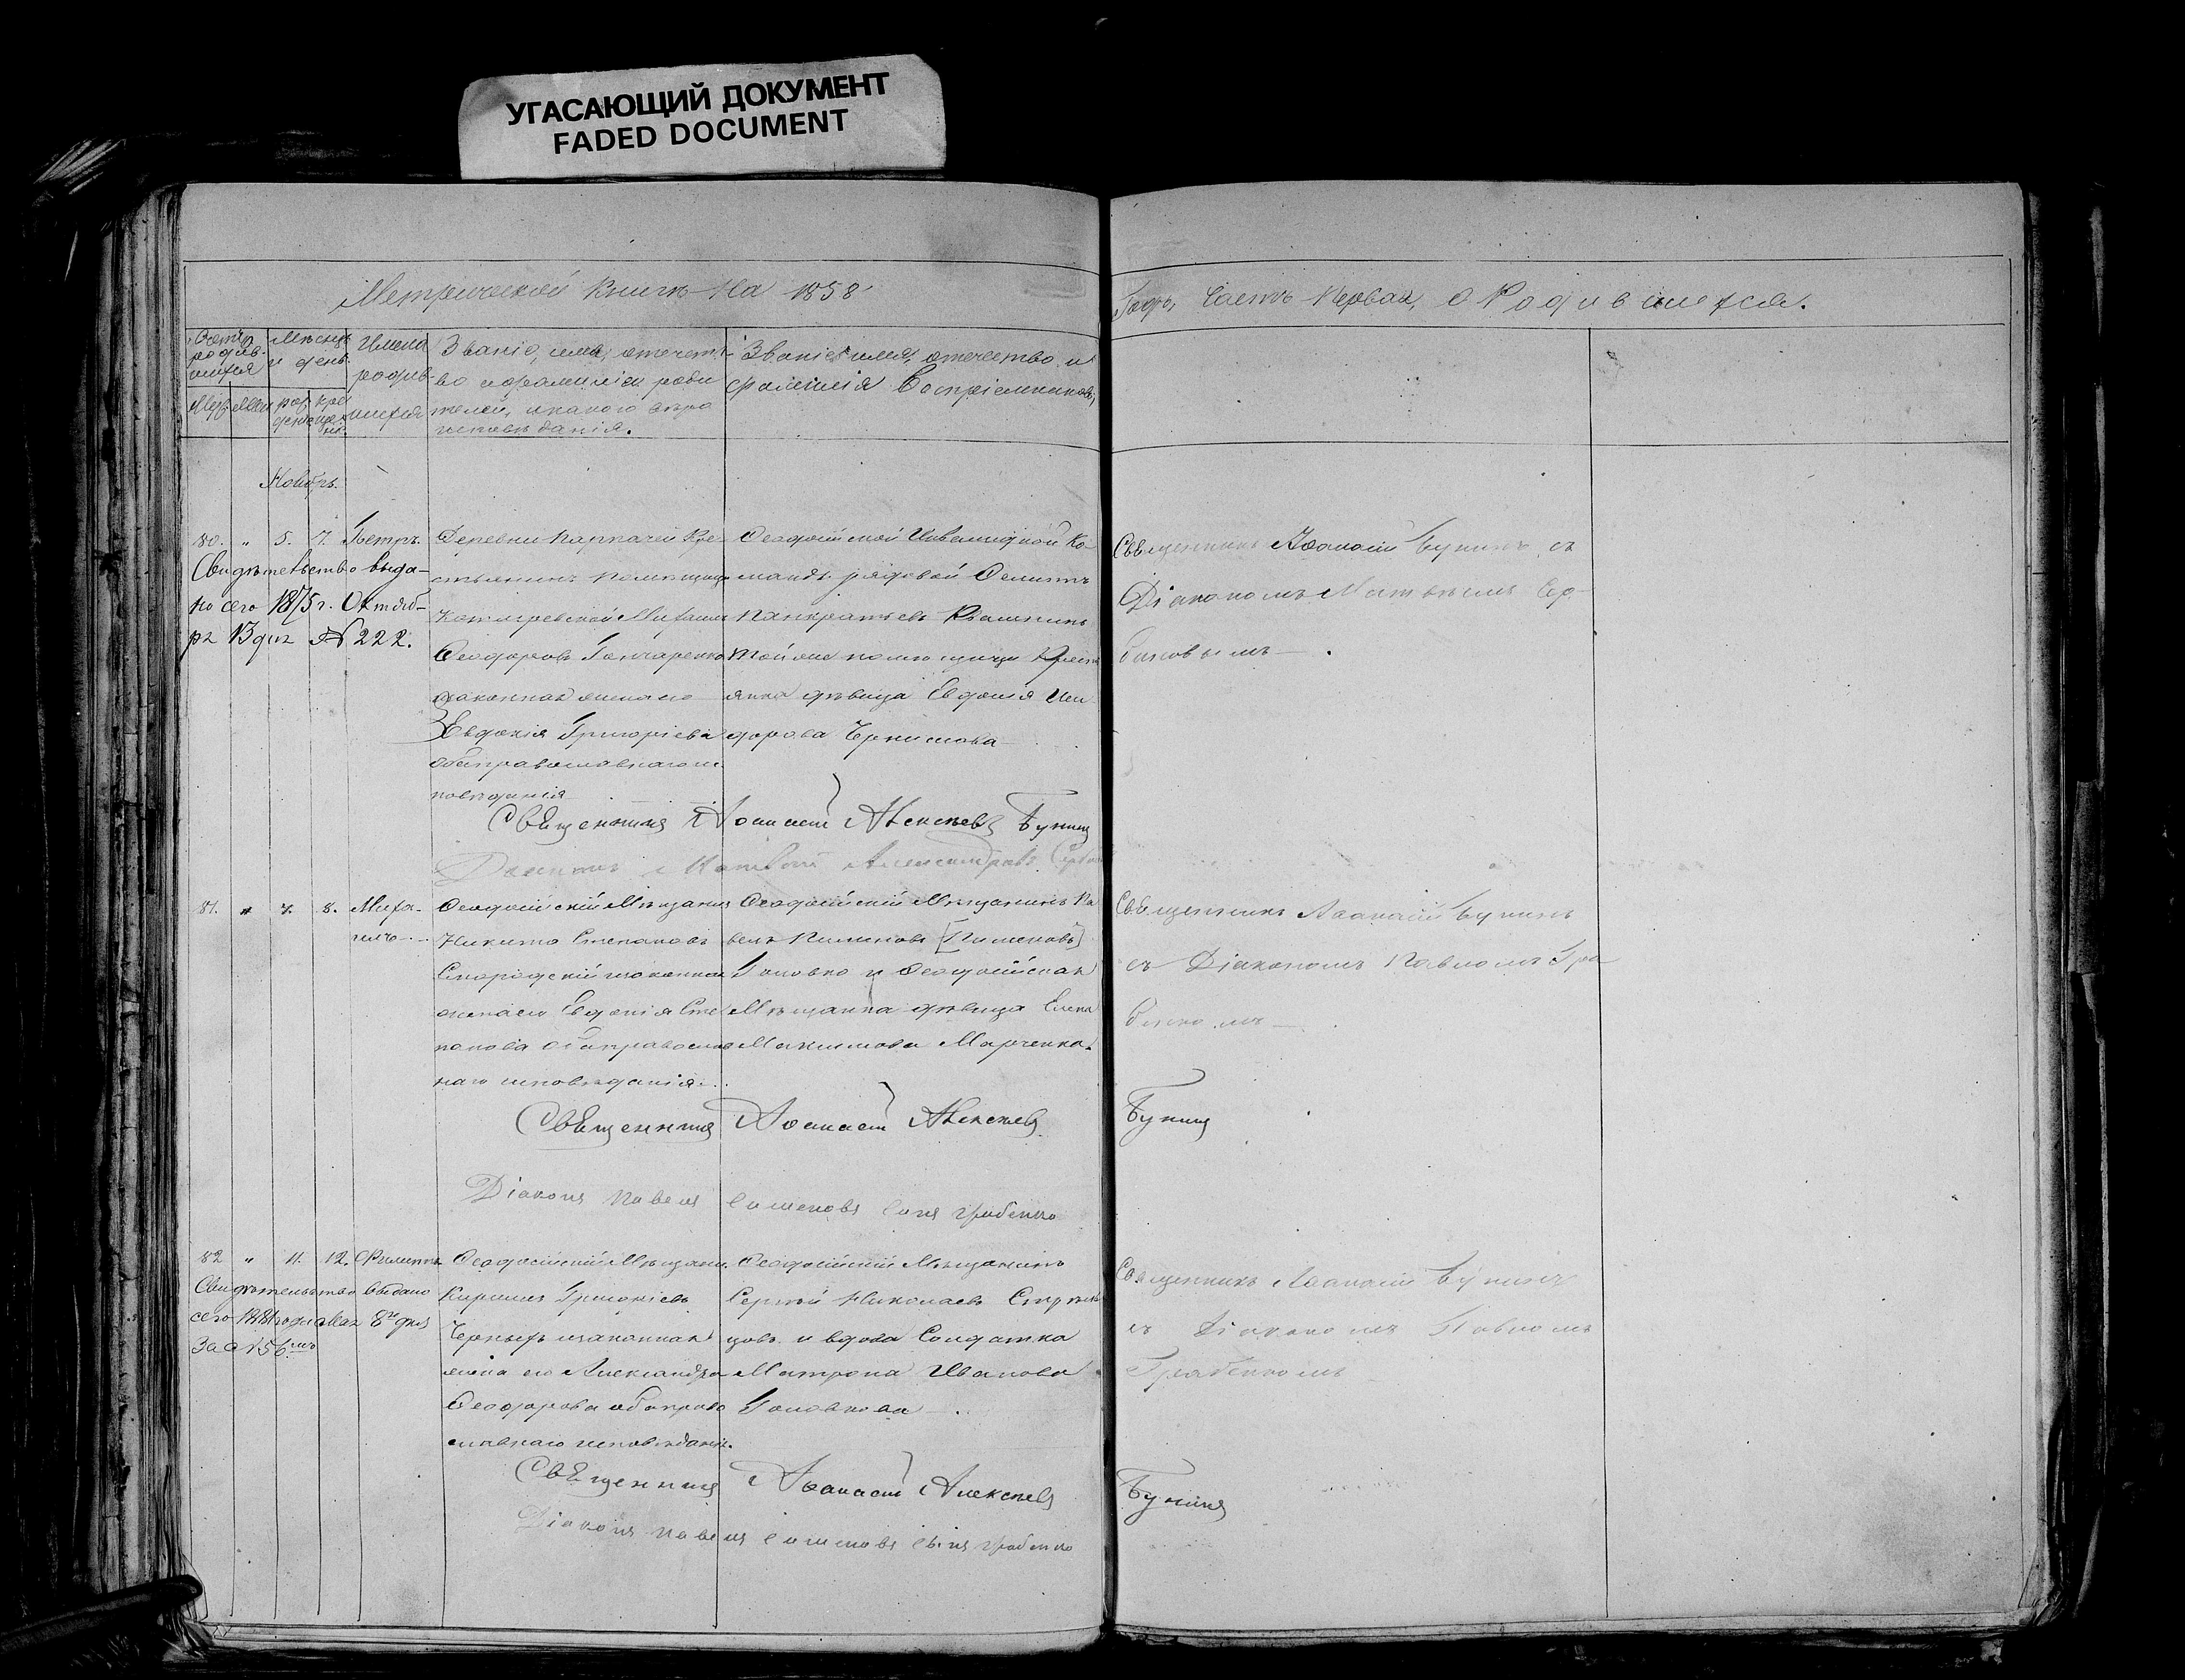 УГАСАЮЩИЙ ДОКУМЕНТ
FADED DOCUMENT
Метрической Книги На 1858
Годъ, Часть Первая, о Родившихся.
Счетъ родив-шихся
Мѣсяцъ и день
Имена родив-шихся
Званіе, имя, отечест-
во и фамилія роди
телей, и какого вѣро
исповѣданія.
Званіе, имя, отечество и
фамилія Воспріемниковъ,
Ноябрь.
80. „ 5. 7. Петръ.
Свидѣтельство выда-
но сего 1875 г. Октяб-
ря 13 дня № 222.
Деревни Карпачей Кре-
стьянинъ помѣщицы
Михаилъ
Ѳеодоровъ Гончаренко
законная жена его
Евдокія Григоріева
оба православнаго ис
повѣданія
Ѳеодосійской Инвалидной Ко-
манды рядовой
Панкратьевъ
той же помѣщицы Крест
янка дѣвица Евдокія
дорова
Священникъ Аѳанасій Бунинъ съ
Діакономъ Матвѣемъ Сер-
биновымъ
Священникъ Аѳанасій Алексѣевъ Бунинъ
Діаконъ Матвѣй Александровъ
81. „ 7. 8. Миха-
илъ
Ѳеодосійскій Мѣщанинъ
Никита Степановъ
законная
жена его Евдокія Сте
панова оба православ
наго исповѣданія.
Ѳеодосійскій Мѣщанинъ Па
велъ Пименовъ [Пименовъ]
Головко и Ѳеодосійская
Мѣщанка дѣвица Елена
Максимова Марченко.
Священникъ Аѳанасій Бунинъ
съ Діакономъ Павломъ Гра
бенкомъ
Священникъ Аѳанасій Алексѣевъ Бунинъ
Діаконъ Павелъ Симеоновъ сынъ Грабенко
82 „ 11. 12. Филиппъ
Свидѣтельство выдано
сего 1881 года Мая 8го дня
За № 156мъ
Ѳеодосійскій Мѣщани.
Кириллъ Григоріевъ
Черныхъ и законная
жена его Александра
Ѳеодорова оба право
славнаго исповѣданія.
Ѳеодосійскій Мѣщанинъ
Сергѣй Николаевъ Стрѣль
цовъ и вдова Солдатка
Матрона Иванова
Головкова
Священникъ Аѳанасій Бунинъ
съ Діакономъ Павломъ
Грабенкомъ
Священникъ Аѳанасій Алексѣевъ Бунинъ
Діаконъ Павелъ Симеоновъ сынъ Грабенко